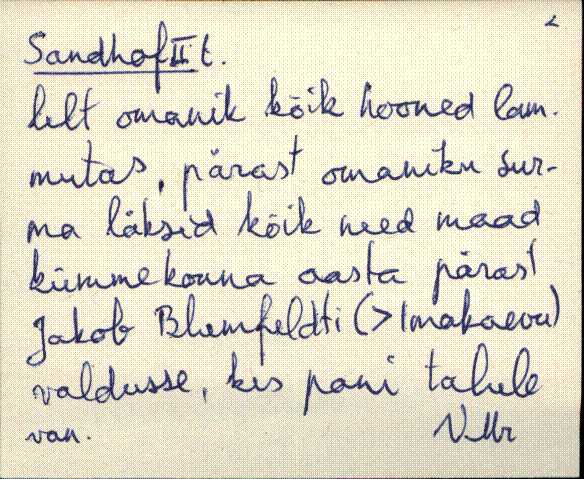 2
Sandhof II t.
lelt omanik kõik hooned lam-
mutas, pärast omaniku sur-
ma läksid kõik need maad
kümmekonna aasta pärast
Jakob Blumfeldti (> Imakaevu)
valdusse, kes pani talule
van. VMr